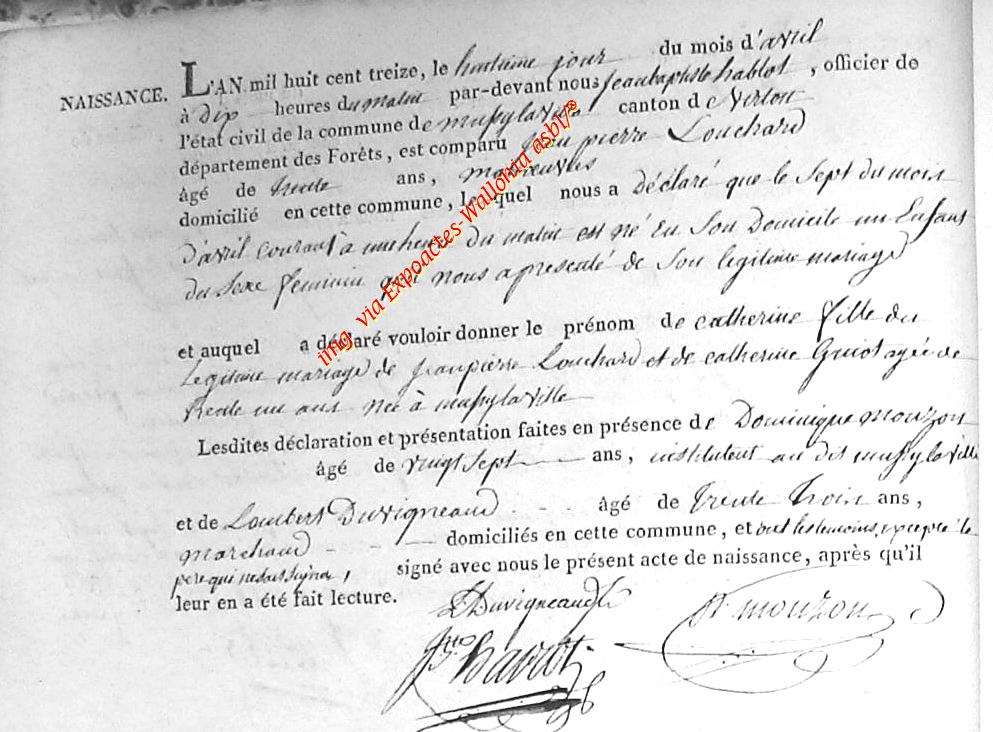 NAISSANCE. L'AN mil huit cent treize, le huitieme jour du mois d'avril
à dix heures du matin par-devant nous jeanbaptiste hablot, officier de
l'état civil de la commune de mussylaville canton de virton
département des Forêts, est comparu jean pierre Louchard
âgé de trente ans, manoeuvres
domicilié en cette commune, lequel nous a déclaré que le Sept du mois
d'avril courant à une heure du matin est né En Son Domicile un Enfans
du Sexe feminin qu'il nous a presenté de Son legitime mariage
et auquel a déclaré vouloir donner le prénom de catherine fille du
legitime mariage de jeanpierre Louchard et de catherine Guiot agée de
trente un ans née à mussylaville
Lesdites déclaration et présentation faites en présence de Dominique mouzon
âgé de vingt Sept ans, instituteur au dit mussylaville
et de Lambert Duvigneaud âgé de trente trois ans,
marchand domiciliés en cette commune, et ont les temoins, excepté le
pere qui ne sait signer, signé avec nous le présent acte de naissance, après qu'il
leur en a été fait lecture.
L Duvigneaud
D. mouzon
hablot
img. via Expoactes-Wallonia asbl/®